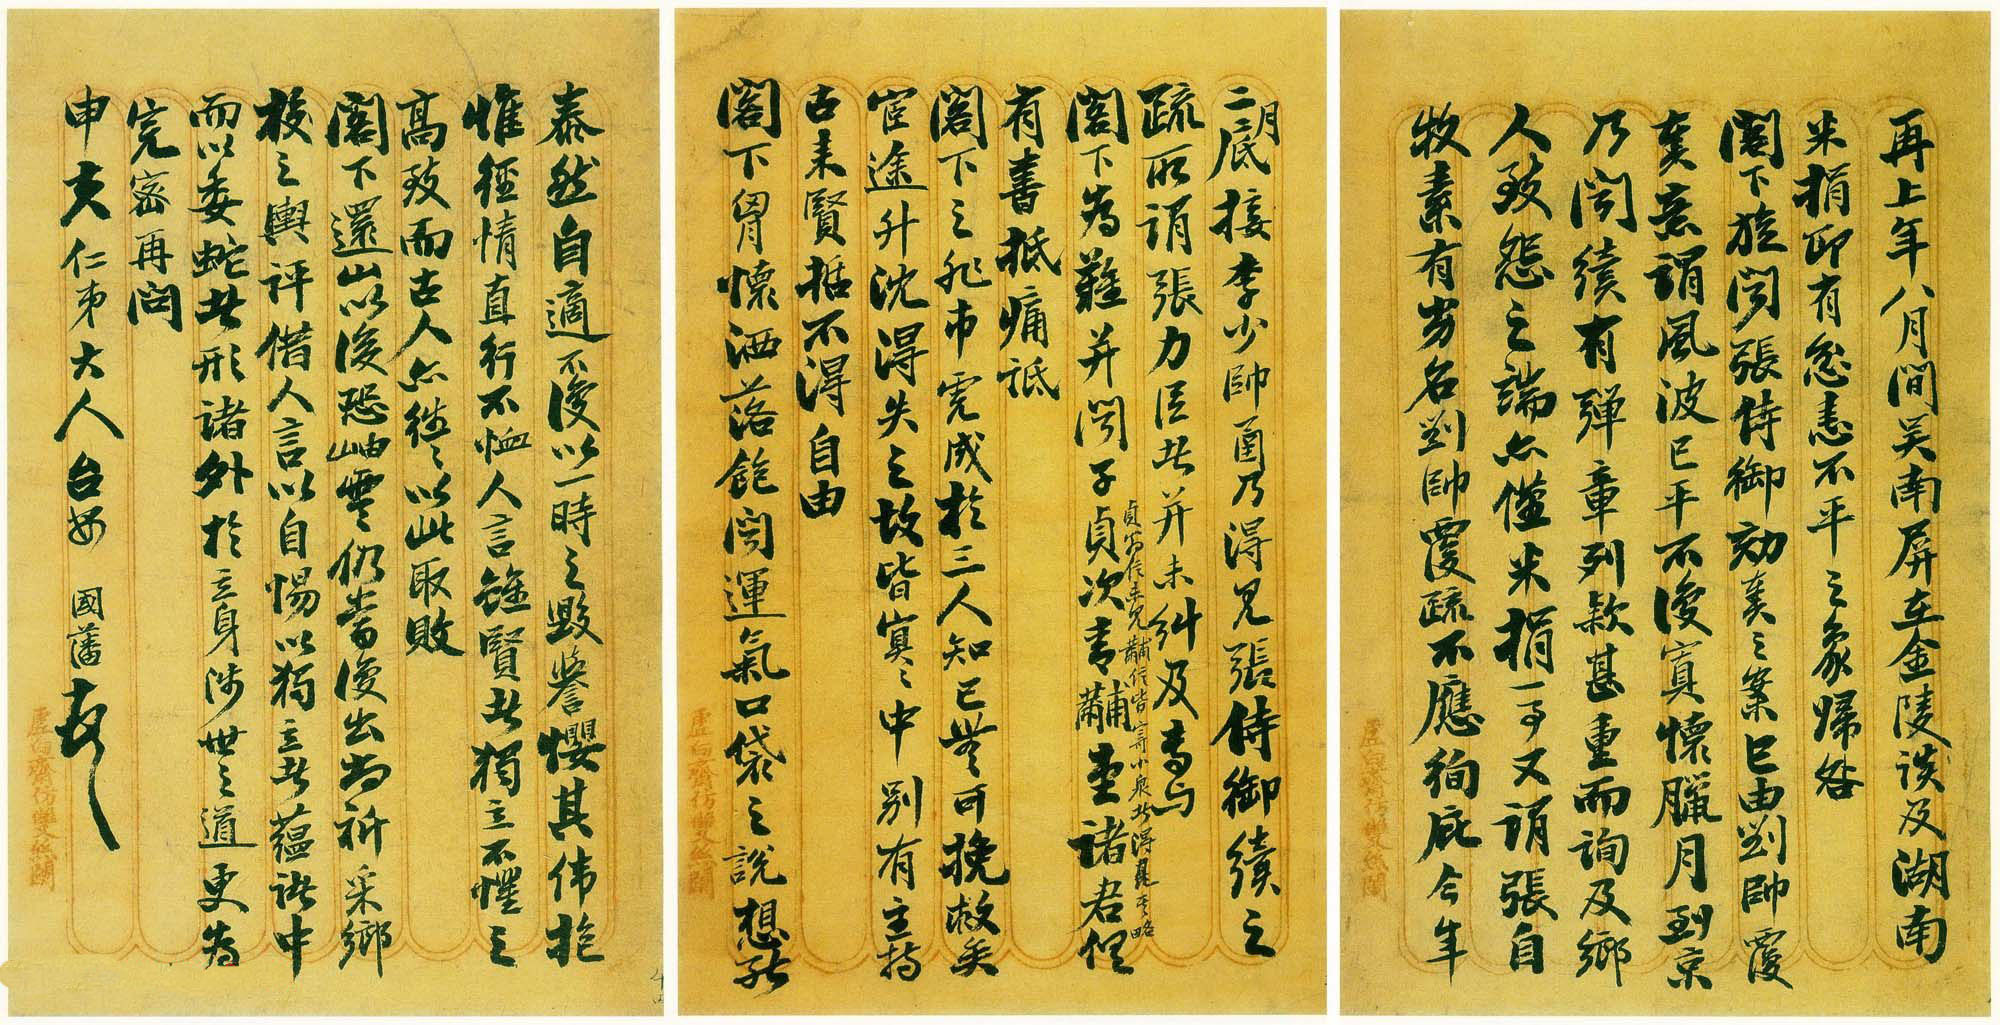 再上年八月間吴南屏在金陵談及湖南
米捐即有忿恚不平之象歸咎
閣下旋聞張侍御劾奏之案已由劉帥覆
奏意謂風波已平不復寘懷臘月到京
乃聞續有彈章列款甚重而詢及鄉
人致怨之端亦僅米捐一事又謂張自
牧素有劣名劉帥覆疏不應徇庇今年
二月底接李少帥函乃得見張侍御續之
疏所謂張力臣者并未糾及専与
閣下為難并聞子貞次青黼堂諸君俱
貞写信未見黼信皆寄小泉者得見大略
有書抵痛詆
閣下之飛市虎成於三人知已無可挽救矣
宦途升沈得失之故皆寘寘中別有主持
古来賢哲不得自由
閣下胷懷洒落飽聞運氣口袋之說想能
泰然自適不復以一時之毀譽懼其偉抱
惟徑情直行不恤人言雖賢者獨立不懼之
高致而古人亦往往以此取敗
閣下還山以後恐岫雲仍當復出尚祈采鄉
校之輿評借人言以自惕以獨立者蘊諸中
而以委蛇者形諸外於立身涉世之道更為
完密再問
申夫仁弟大人台安 國藩頓
虛白齋仿蝉文紙闌
虛白齋仿蝉文紙闌
虛白齋仿蝉文紙闌